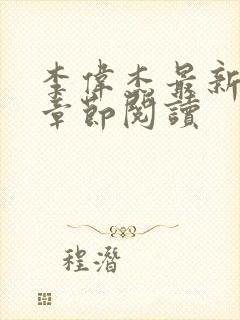 李偉杰最新
章節閱讀
程潛